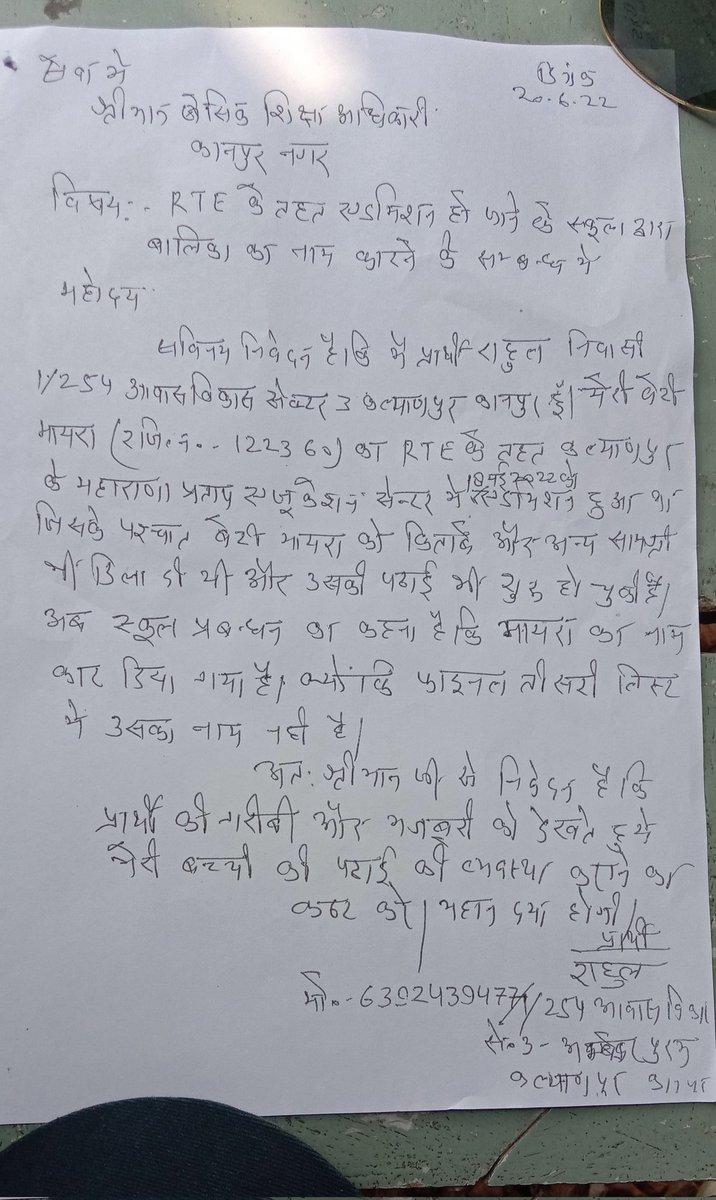 सेवा में
दिनांक
20.6.22
श्रीमान बेसिक शिक्षा अधिकारी
कानपुर नगर
विषय:- RTE के तहत एडमिशन हो जाने के स्कूल द्वारा
बालिका का नाम काटने के सम्बन्ध में
महोदय
सविनय निवेदन है कि मैं प्रार्थी राहुल निवासी
1/254 आवास विकास सेक्टर 3 कल्याणपुर कानपुर हूँ। मेरी बेटी
मायरा (रजि.न.-- 122360) का RTE के तहत कल्याणपुर
के महाराणा प्रताप एजूकेशन सेन्टर में 18 मई 2022 को एडमिशन हुआ था
जिसके पश्चात बेटी मायरा को किताबें और अन्य सामग्री
भी दिला दी थी और उसकी पढाई भी शुरू हो चुकी है।
अब स्कूल प्रबन्धन का कहना है कि मायरा का नाम
काट दिया गया है। क्योंकि फाइनल तीसरी लिस्ट
में उसका नाम नही है।
अत: श्रीमान जी से निवेदन है कि
प्रार्थी की गरीबी और मजबूरी को देखते हुये
मेरी बच्ची की पढाई की व्यवस्था कराने का
कष्ट करे। महान दया होगी।
प्रार्थी
राहुल
मो०-6392439477 1/254 आवास विकास
से०3-
कल्याणपुर कानपुर